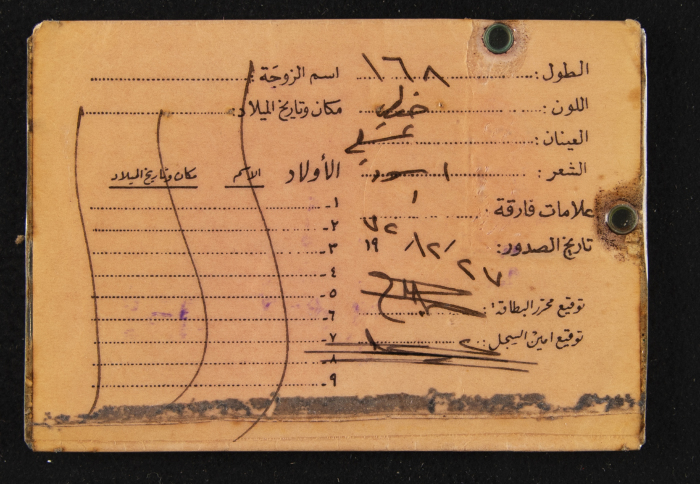 الطول: ١٦٨
اللون:
العينان: عسلي
الشعر: اسود
علامات فارقة:
تاريخ الصدور: ٢٧/١٢/١٩٧٢
توقيع محرر البطاقة:
توقيع امين السجل:
اسم الزوجة:
مكان وتاريخ الميلاد:
الأولاد الاسم مكان وتاريخ الميلاد
١-
٢-
٣-
٤-
٥-
٦-
٧-
٨-
٩-